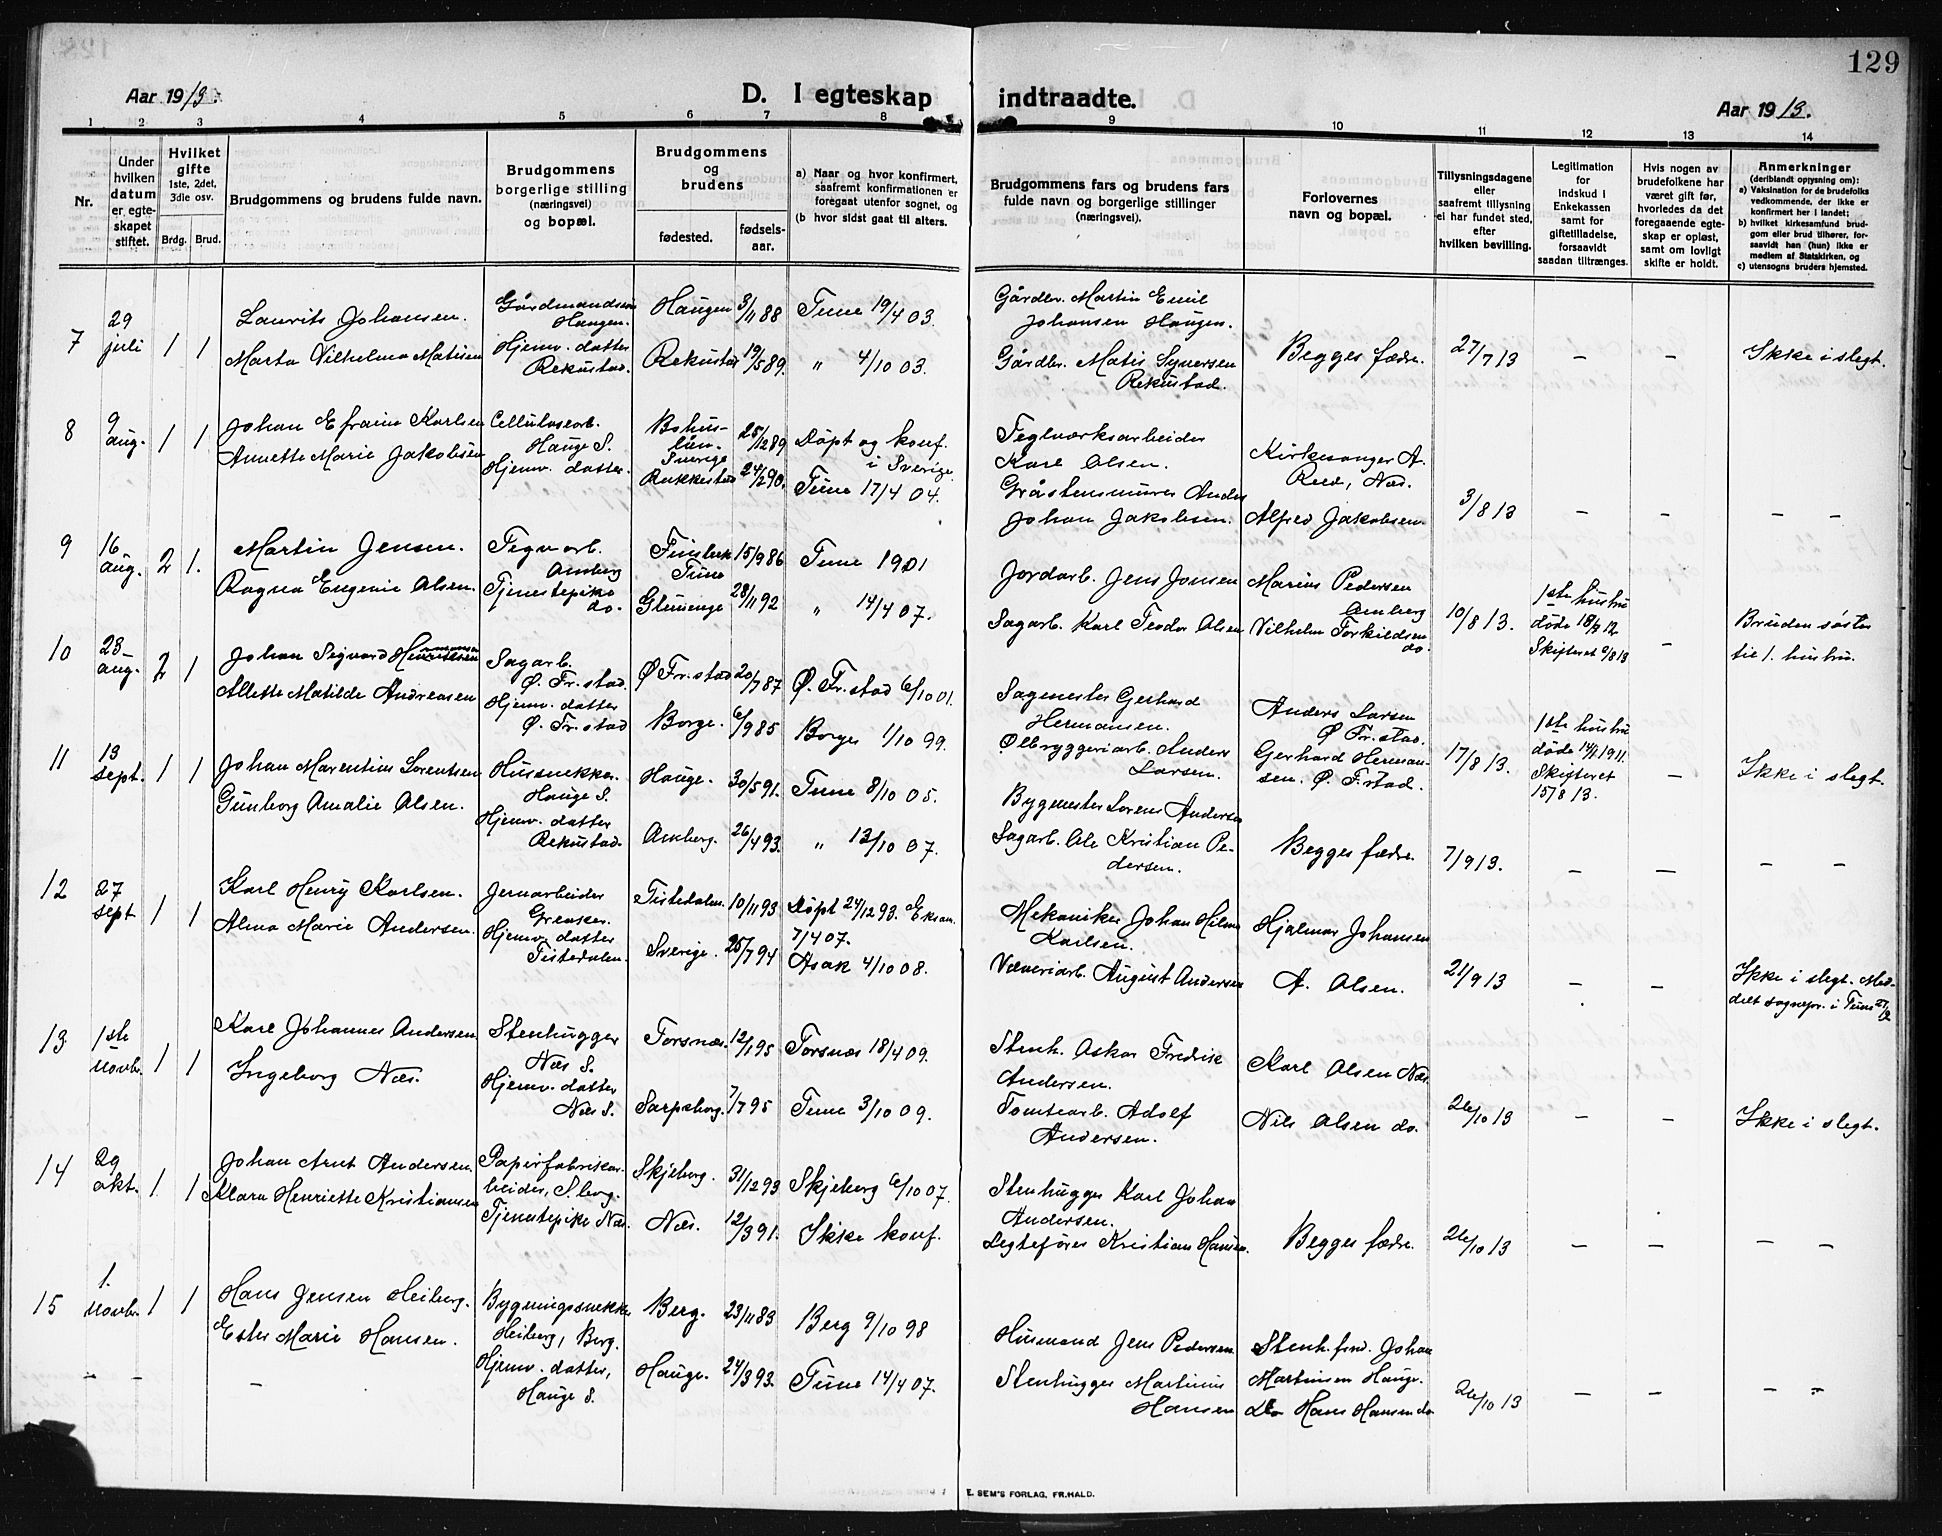 129
Aar 1913.
D. I egteskap indtraadte.
Aar 1913.
1 2 3 4 5 6 7 8 9 10 11 12 13 14
Nr.
Under
hvilken
datum
er egte-
skapet
stiftet.
Hvilket
gifte
1ste, 2det,
3die osv.
Brdg. Brud.
Brudgommens og brudens fulde navn.
Brudgommens
borgerlige stilling
(næringsvei)
og bopæl.
Brudgommens
og
brudens
fødested.
fødsels-
aar.
a) Naar og hvor konfirmert,
saafremt konfirmationen er
foregaat utenfor sognet, og
(b hvor sidst gaat til alters.
Brudgommens fars og brudens fars
fulde navn og borgerlige stillinger
(næringsvei).
Forlovernes
navn og bopæl.
Tillysningsdagene
eller
saafremt tillysning
ei har fundet sted,
efter
hvilken bevilling.
Legitimation
for
indskud i
Enkekassen
samt for
giftetilladelse,
forsaavidt
saadan tiltrænges.
Hvis nogen av
brudefolkene har
været gift før,
hvorledes da det
foregaaende egte-
skap er opløst,
samt om lovligt
skifte er holdt.
Anmerkninger
(deriblandt opjysning om):
a) Vaksination for de brudefolks
vedkommende, der ikke er
konfirmert her i landet;
b) hvilket kirkesamfund brud-
gom eller brud tilhører, for-
saavidt han (hun) ikke er
medlem af Statskirken, og
c) utensogns bruders hjemsted.
7 29 juli 1 1
Laurits Johansen.
Marta Vilhelmine Matisen
Gårdmandssøn
Haugen.
Hjemv. datter
Rekustad.
Haugen 3/11 88 Tune 19/4 03.
Rekustad 19/5 89. " 4/10 03.
Gårdbr. Martin Emil
Johansen Haugen.
Gårdbr. Matis Syversen
Rekustad.
Begges fædre.
27/7 13 – –
Ikke i slegt.
8 9 aug. 1 1
Johan Efraim Karlsen
Annette Marie Jakobsen
Cellulosearb.
Hauge S.
Hjemv. datter.
Bohus-
län.
Sverige 25/12 89
Rakkestad 24/2 90.
Døpt og konf.
i Sverige.
Tune 17/4 04.
Teglverksarbeider
Karl Olsen.
Gråstensmurer Anders
Johan Jakobsen.
Kirkesanger A.
Reed, Næs.
Alfred Jakobsen.
3/8 13 – – – –
9 16 aug. 2 1.
Martin Jensen.
Ragna Eugenie Olsen.
Tegnarb.
Amberg
Tjenestepike
do.
Tune 15/9 86 Tune 1901
Glemenge 28/11 92 " 14/4 07.
Jordarb. Jens Jonsen
Sagarb. Karl Teodor Olsen
Marius Pedersen
Amberg
Vilhelm Torkildsen
do.
10/8 13.
1ste hustru
døde 18/2 12
Skifteret 9/8 13
–
Bruden søster
til 1. hustru.
10 23 aug. 2 1
Johan Sigvard Hermansen
Allette Matilde Andreasen
Sagarb.
Ø. Fr.stad.
Hjemv. datter
Ø. Fr.stad
Ø Fr.stad 20/7 87 Ø. Fr.stad 6/10 01.
Borge. 6/9 85 Borge 1/10 99.
Sagmester Gerhard
Hermansen.
Ølbryggeriarb. Anders
Larsen.
Anders Larsen
Ø Fr.stad.
Gerhard Herman-
sen. Ø. F.stad.
17/8 13.
1ste hustru
døde 14/1 1911.
Skifteret
15/8 13.
–
Ikke i slegt.
11 13 sept. 1 1
Johan Marentius Lorentsen
Gunborg Amalie Olsen.
Hussnekker.
Hauge S.
Hjemv. datter
Rekustad.
Hauge. 30/5 91. Tune 8/10 05.
Amberg. 26/4 93. " 13/10 07.
Bygmester Lorens Andersen
Sagarb. Ole Kristian Pe-
dersen.
Begges fædre.
7/9 13. – – – –
12 27 sept. 1 1
Karl Henry Karlsen.
Alma Marie Andersen.
Jernarbeider
Greaker.
Hjemv. datter
Tistedalen.
Tistedalen. 10/11 93 Døpt 24/12 93. Eksam.
7/4 07.
Sverige. 25/7 94 Asak 4/10 08.
Mekaniker Johan Hilmar
Karlsen.
Væveriarb. August Andersen
Hjalmar Johansen
A. Olsen.
21/9 13 – –
Ikke i slegt. Med-
delt sognepr. i Tune
13 1ste novbr. 1 1
Karl Johannes Andersen
Ingeborg Næs.
Stenhugger
Næs S.
Hjemv. datter
Næs S.
Torsnæs. 12/1 95 Torsnæs 18/4 09.
Sarpsborg. 7/7 95 Tune 3/10 09.
Stenh. Oskar Fredrik
Andersen.
Tomtearb. Adolf
Andersen.
Karl Olsen Næs.
Nils Olsen do.
26/10 13 – –
Ikke i slegt.
14 29 okt. 1 1
Johan Arnt Andersen.
Klara Henriette Kristiansen
Papirfabrikar-
beider, S.borg.
Tjenestepike Næs.
Skjeberg. 31/12 93 Skjeberg 6/10 07.
Næs. 12/3 91. Ikke konf.
Stenhugger Karl Johan
Andersen.
Legtefører Kristian Hansen.
Begges fædre.
26/10 13 – – – –
15 1. novbr. 1 1
Hans Jensen Heiberg.
Ester Marie Hansen.
Bygningssnekker
Heiberg, Berg.
Hjemv. datter,
Hauge S.
Berg. 23/11 83 Berg 9/10 98
Hauge. 24/3 93. Tune 14/4 07.
Husmand Jens Pedersen
Stenhugger Martinius
Hansen
Stenh.fmd. Johan
Martinsen Hauge.
Do Hans Hansen do
26/10 13 – – – –
– – –
E. SEM'S FORLAG, FR.HALD.